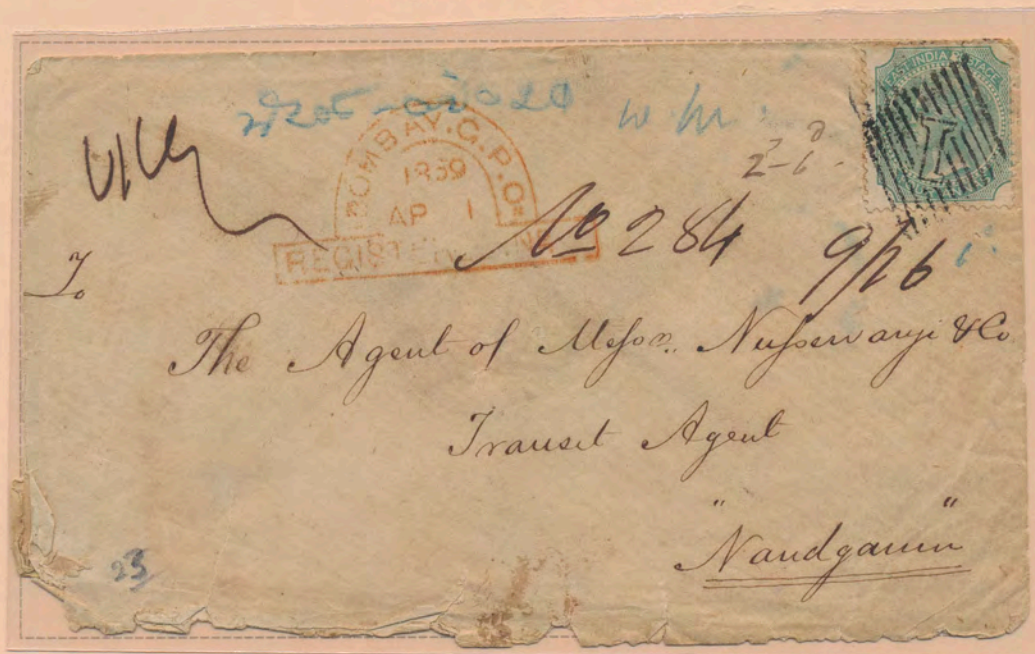 EAST INDIA POSTAGE
1
BOMBAY.G.P.O.
1859
AP 1
2-6
No 284
9/26
To
The Agent of Messrs. Nusserwanji & Co
Transit Agent
"Nandgaum"
23